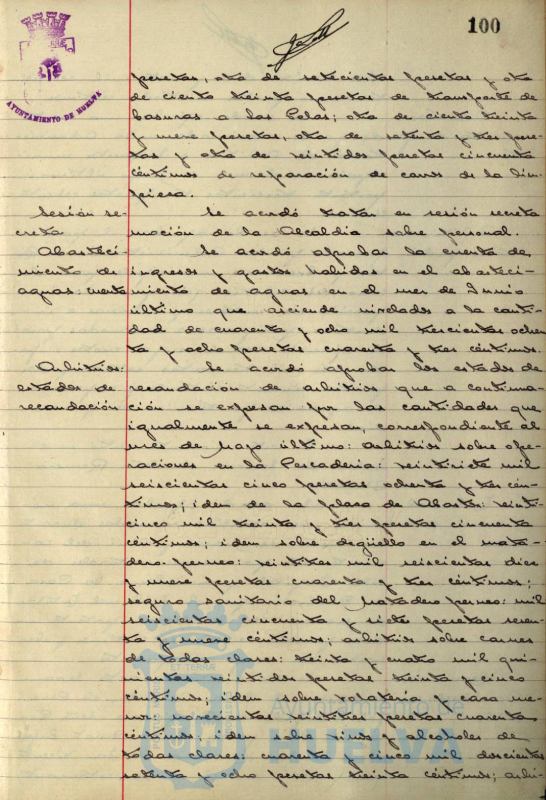 100
AYUNTAMIENTO DE HUELVA
pesetas, otra de setecientas pesetas y otra
de ciento treinta pesetas de transporte de
basuras a las Polas; otra de ciento treinta
y nueve pesetas, otra de setenta y tres pese-
tas y otra de veintidos pesetas cincuenta
céntimos de reparación de carros de la lim-
pieza.
Sesión se-
creta
Se acordó tratar en sesión secreta
moción de la Alcaldia sobre personal.
Abasteci-
miento de
aguas cuenta
Se acordó aprobar la cuenta de
ingresos y gastos habidos en el abasteci-
miento de aguas en el mes de Junio
último que asciende nivelados a la canti-
dad de cuarenta y ocho mil trescientas ochen
ta y ocho pesetas cuarenta y tres céntimos.
Arbitrios:
estados de
recaudación
Se acordó aprobar los estados de
recaudación de arbitrios que a continua-
ción se expresan por las cantidades que
igualmente se expresan, correspondiente al
mes de Mayo último: arbitrios sobre ope-
raciones en la Pescaderia: veintisiete mil
seiscientas cinco pesetas ochenta y tres cén-
timos; idem de la plaza de Abastos: veinti-
cinco mil treinta y tres pesetas cincuenta
céntimos; idem sobre degüello en el mata-
dero. perneo: veintitres mil seiscientas diez
y nueve pesetas cuarenta y tres céntimos;
seguro sanitario del Matadero perneo: mil
seiscientas cincuenta y siete pesetas seten-
ta y nueve céntimos; arbitrio sobre carnes
de todas clases: treinta y cuatro mil qui-
nientas veintidos pesetas treinta y cinco
céntimos; idem sobre volateria y caza me-
nor: novecientas veintitres pesetas cuarenta
céntimos; idem sobre vinos y alcoholes de
todas clases: cuarenta y cinco mil doscientas
setenta y ocho pesetas treinta céntimos; arbi-
Ayuntamiento de
HUELVA